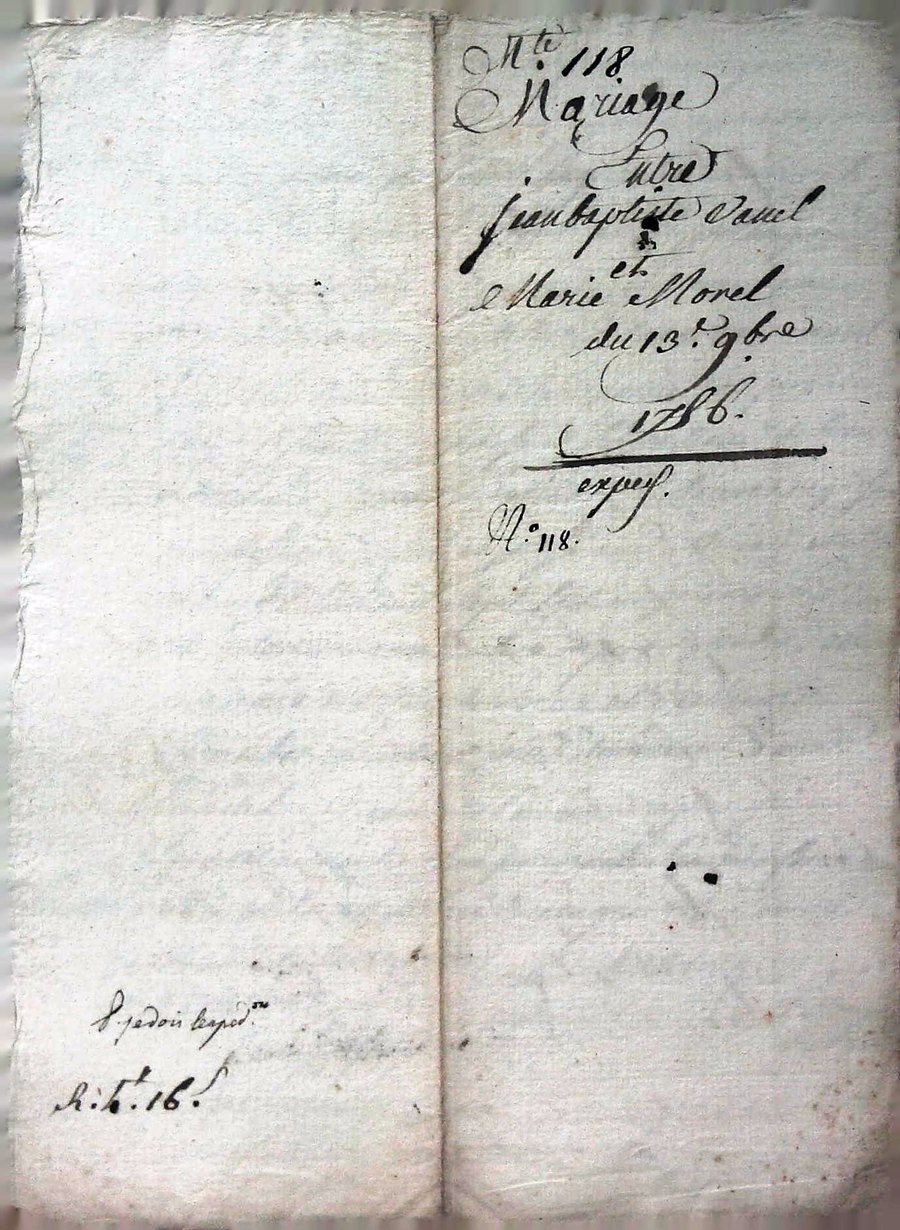 N.te 118
Mariage
Entre
jean baptiste Vanel
et
Marie Morel
du 13.e 9bre
1786.
expéd.
N.o 118.
je dois lexped.on
R. 4.# 16.s